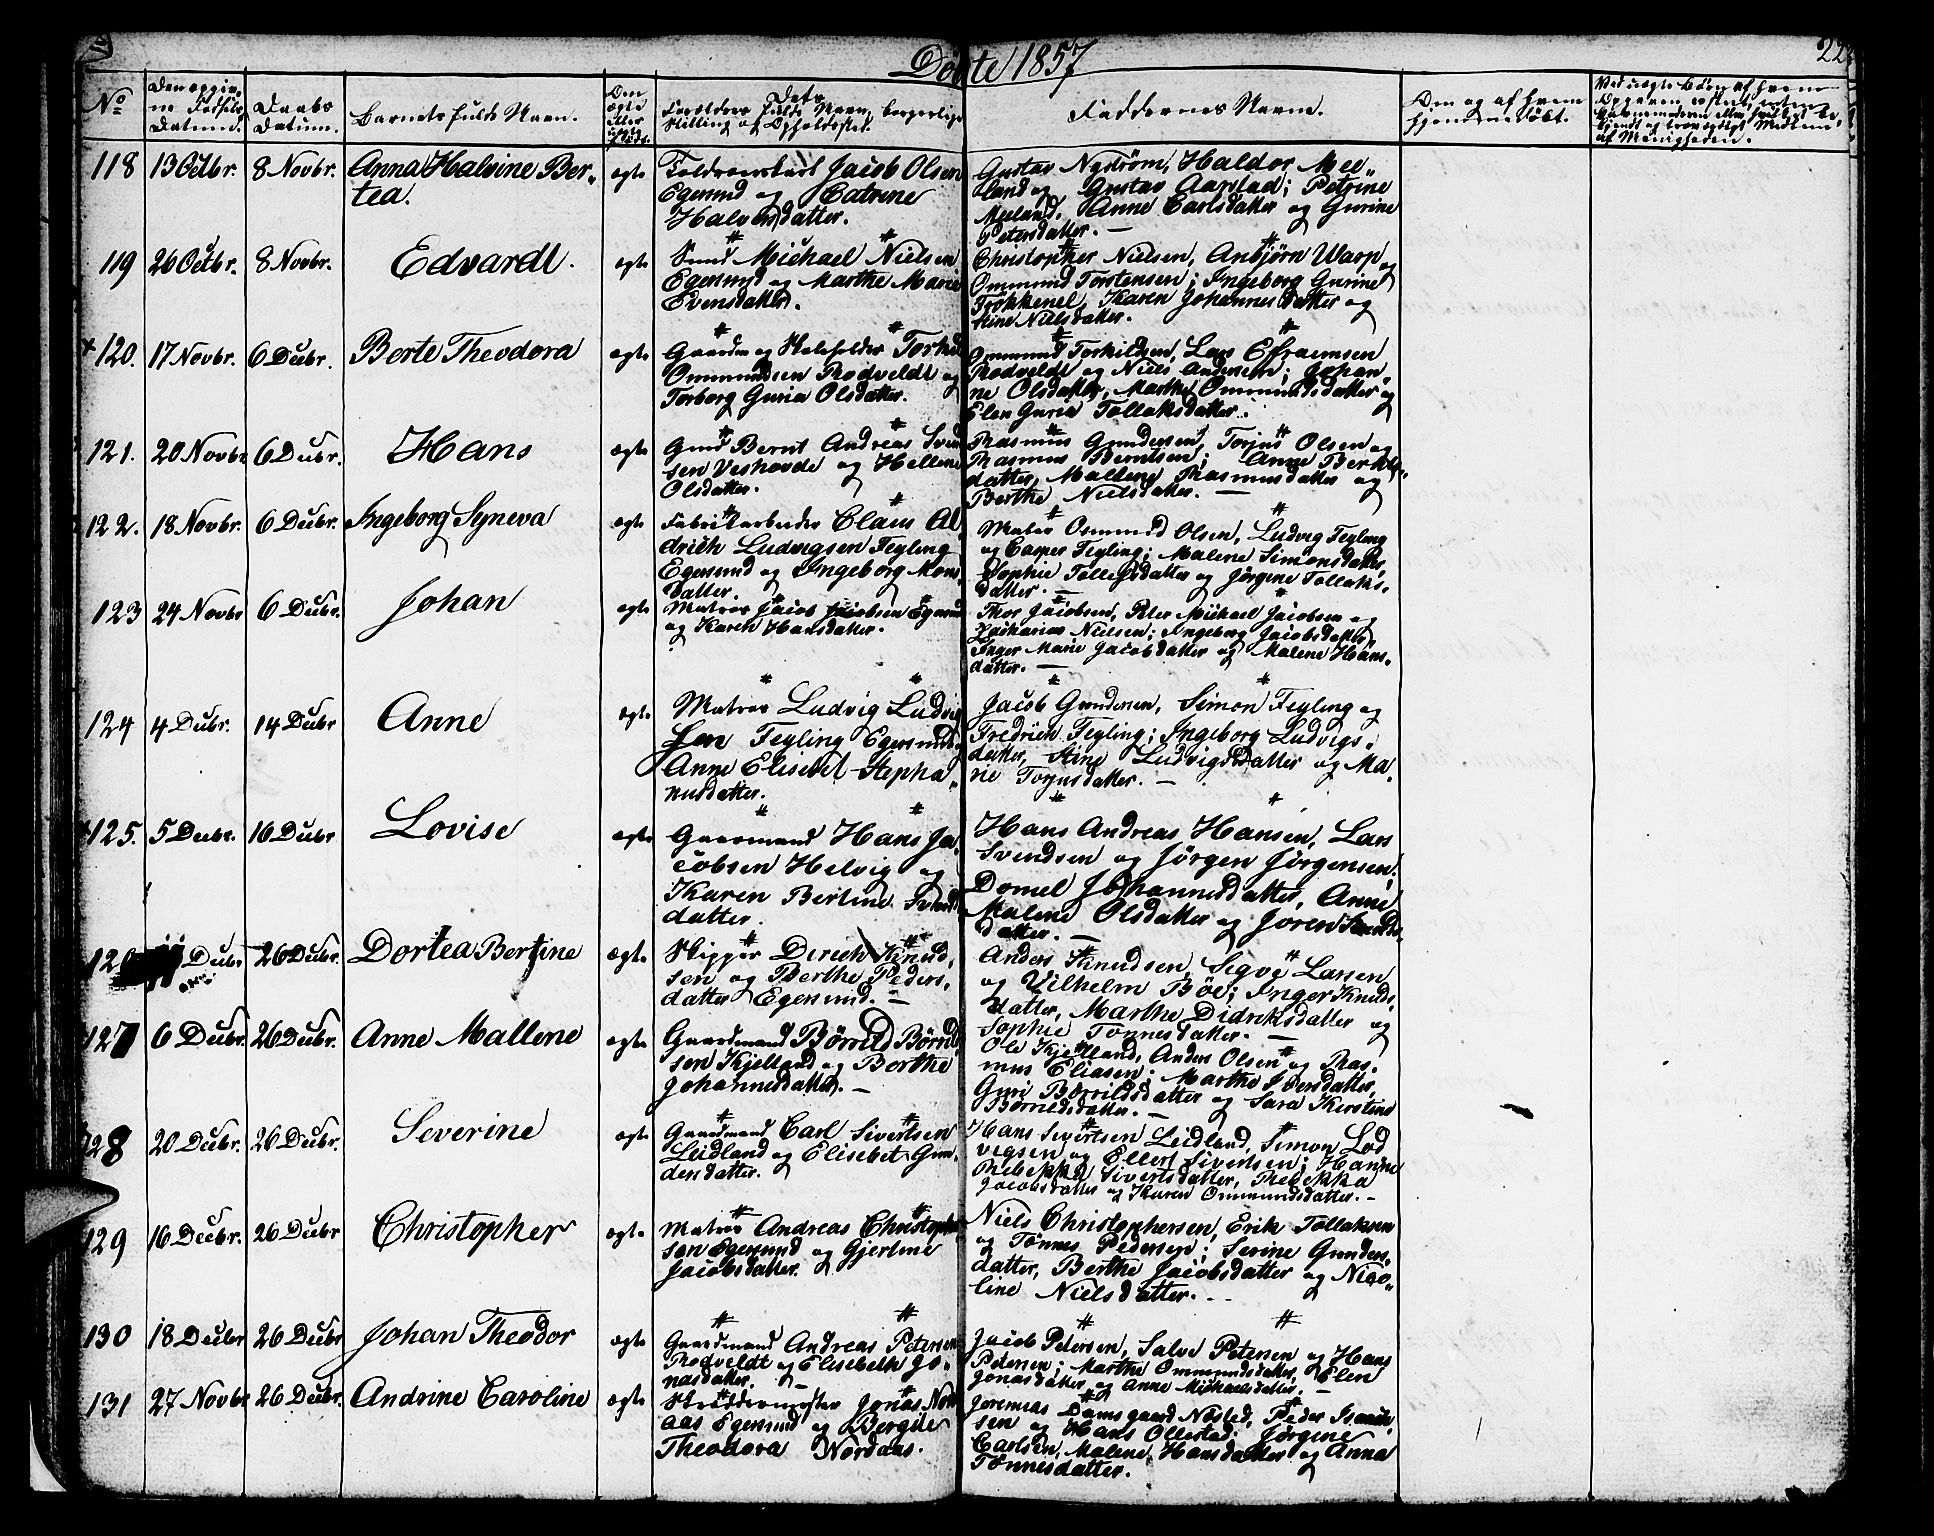 Døbte 1857
No
Den opgivne Fødsels Datum.
Daabs Datum.
Barnets fulde Navn.
Om ægte eller uægte
Forældres fulde Navn, borgerlige Stilling og Opholdssted.
Faddernes Navne.
Om og af hvem hjemmedøbt.
118 13 Octbr. 8 Novbr. Anna Halvine Ber-
tea.
ægte
Jacob Olsen
Egersund og Catrine
Halvorsdatter.
Gustav Nystrøm, Haldor Mee-
land og Gustav Aarstad; Petrine
Meeland, Anne Carlsdatter og Gurine
Petersdatter.
119 26 Octbr. 8 Novbr. Edvardt.
ægte
Smed Michael Nielsen
Egersund og Marthe Marie
Evensdatter.
Christopher Nielsen, Anbjørn Warp og
Ommund Torstensen; Ingeborg Gurine
Karen Johannesdatter og
Stine Nielsdatter.
120. 17 Novbr. 6 Decbr. Berte Theodora
ægte
Gaardm og Skoleholder Torkild
Ommundsen Rodveldt og
Torborg Guria Olsdatter.
Ommund Torkildsen, Lars Efraimsen
Rodveldt og Niels Andersen; Johan-
ne Olsdatter, Marthe Ommundsdatter og
Elen Guria Tollaksdatter.
121. 20 Novbr 6 Decbr. Hans
ægte
Gmd Bernt Andreas Svend
sen Veshovde og Hellene
Olsdatter.
Rasmus Gundersen, Torjus Olsen og
Rasmus Berntsen; Anne Bernts-
datter, Mallene Rasmusdatter og
Berthe Nielsdatter.
122. 18 Novbr. 6 Decbr. Ingeborg Syneva
ægte
Fabrikarbeider Claus Al
drich Ludvigsen Feyling
Egersund og Ingeborg Mons-
datter.
Matros Ommund Olsen, Ludvig Feyling
og Casper Feyling; Malene Simonsdatter,
Sophie Tollefsdatter og Jørgine Tollaks-
datter.
123 24 Novbr 6 Decbr. Johan
ægte
Matros Jacob Jacobsen Egersund
og Karen Hansdatter.
Thor Jacobsen, Peter Michael Jacobsen og
Zacharias Nielsen; Ingeborg Jacobsdatter,
Inger Marie Jacobsdatter og Malene Hans-
datter.
124 4 Decbr. 14 Decbr Anne
ægte
Matros Ludvig Ludvig
sen Feyling Egersund og
Anne Elisebet Stepha-
nusdatter.
Jacob Gundersen, Simon Feyling og
Fredrich Feyling; Ingeborg Ludvigs-
datter, Stine Ludvigsdatter og Ma-
rie Torjusdatter.
125. 5 Decbr. 16 Decbr Lovise
ægte
Gaardmand Hans Ja-
cobsen Helvig og
Karen Bertine Svends
datter.
Hans Andreas Hansen, Lars
Svendsen og Jørgen Jørgensen;
Domel Johannesdatter, Anne
Malene Olsdatter og Joren Svends-
datter.
126 Decbr 26 Decbr. Dortea Bertine
ægte
Skipper Dirich Knud-
sen og Berthe Peders-
datter Egersund.
Anders Knudsen, Sigve Larsen
og Vilhelm Böe; Inger Knuds-
datter, Marthe Didriksdatter og
Sophie Tønnesdatter.
127 6 Decbr. 26 Decbr. Anne Mallene
ægte
Gaardmand Börrild Börrild
sen Kjelland og Berthe
Johannesdatter.
Ole Kjelland, Anders Olsen og Ras-
mus Eliasen; Marthe Iversdatter,
Guri Börrildsdatter og Sara Kirstine
Börrildsdatter.
128 20 Decbr. 26 Decbr. Severine
ægte
Gaardmand Carl Sivertsen
Leidland og Elisebet Gun-
dersdatter.
Hans Sivertsen Leidland, Simon Lod
vigsen og Ellert Sivertsen; Hanne
Rebekka Sivertsdatter, Rebekka
Jacobsdatter og Karen Ommundsdatter.
129 16 Decbr. 26 Decbr Christopher
ægte
Matros Andreas Christopher
sen Egersund og Gjertine
Jacobsdatter.
Niels Christophersen, Erik Tollaksen
og Tønnes Pedersen; Serine Gunders-
datter, Berthe Jacobsdatter og Nico-
line Nielsdatter.
130 18 Decbr 26 Decbr Johan Theodor
ægte
Gaardmand Andreas Petersen
Rodveldt og Elisebeth Jo-
nasdatter.
Jacob Petersen, Salve Petersen og Hans
Petersen; Marthe Ommundsdatter, Elen
Jonasdatter og Anne Michaelsdatter.
131 27 Novbr 26 Decbr. Andrine Caroline
ægte
Skræddermester Jonas Nord
aas Egersund og Bergite
Theodora Nordaas.
Jeremias Damsgaard Næsted, Peder Isach-
sen og Hans Ollestad; Jørgine
Carlsen, Malene Hansdatter og Anna
Tønnesdatter.